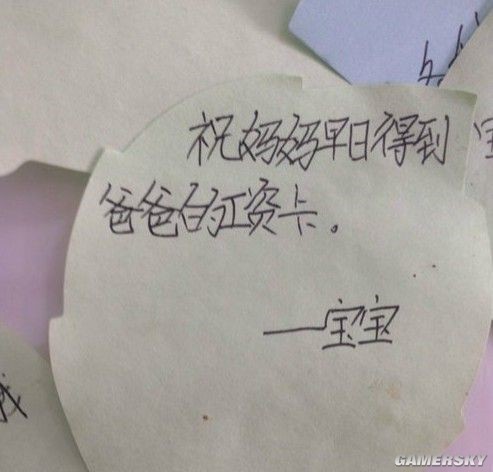 祝妈妈早日得到
爸爸的工资卡。
——宝宝
我
GAMERSKY